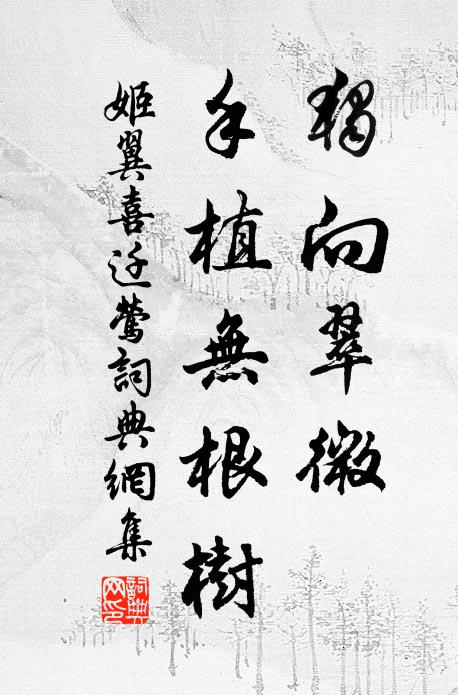 獨向翠微
手植無根樹
姬翼喜迁鶯詞典網集
詞典網印